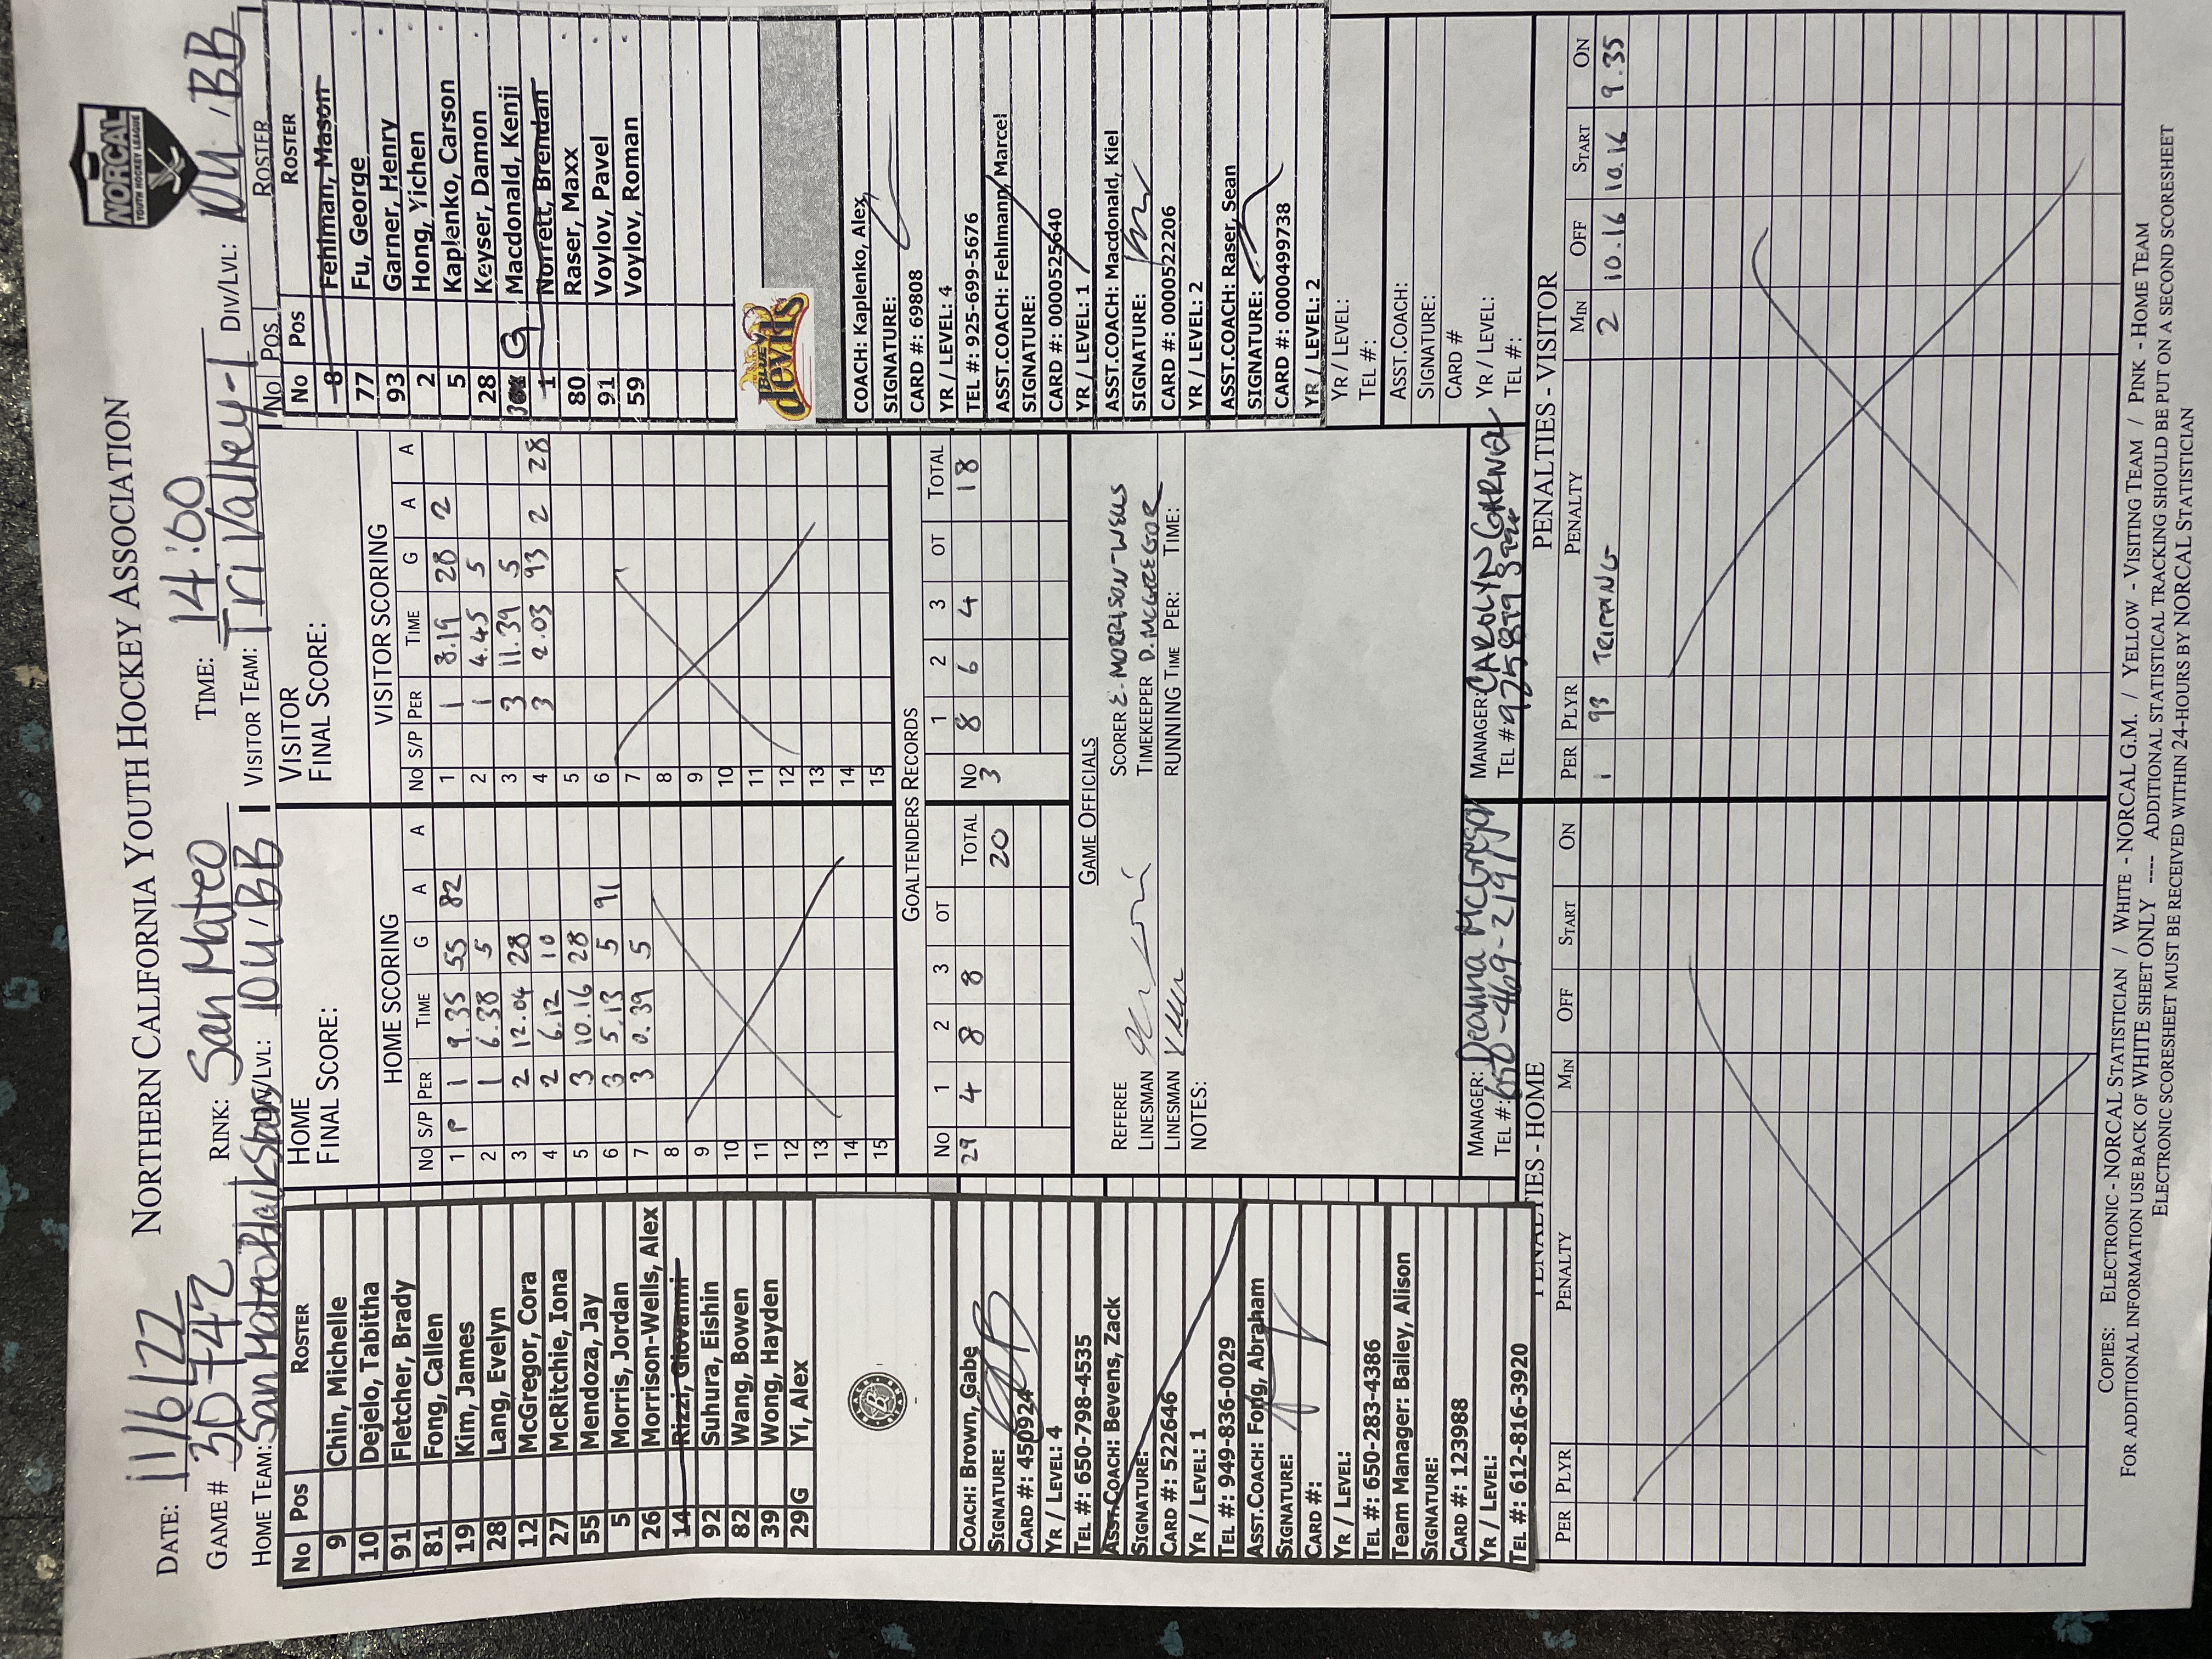 NORTHERN CALIFORNIA YOUTH HOCKEY ASSOCIATION
NORCAL
YOUTH HOCKEY LEAGUE
DATE: 11/6/22
GAME # 3D+42 RINK: San Mateo TIME: 14:00
HOME TEAM: San Mateo Black Stars DIV/LVL: 10U BB VISITOR TEAM: Tri Valley-1 DIV/LVL: 10U BB
No Pos ROSTER
9 Chin, Michelle
10 Dejelo, Tabitha
91 Fletcher, Brady
81 Fong, Callen
19 Kim, James
28 Lang, Evelyn
12 McGregor, Cora
27 McRitchie, Iona
55 Mendoza, Jay
5 Morris, Jordan
26 Morrison-Wells, Alex
14 Rizzi, Giovanni
92 Suhura, Eishin
82 Wang, Bowen
39 Wong, Hayden
29 G Yi, Alex
COACH: Brown, Gabe
SIGNATURE:
CARD #: 450924
YR / LEVEL: 4
TEL #: 650-798-4535
ASST.COACH: Bevens, Zack
SIGNATURE:
CARD #: 522646
YR / LEVEL: 1
TEL #: 949-836-0029
ASST.COACH: Fong, Abraham
SIGNATURE:
CARD #:
YR / LEVEL:
TEL #: 650-283-4386
Team Manager: Bailey, Alison
SIGNATURE:
CARD #: 123988
YR / LEVEL:
TEL #: 612-816-3920
HOME
FINAL SCORE:
HOME SCORING
No S/P PER TIME G A A
1 P 1 9.35 55 82
2 1 6.38 5
3 2 12.04 28
4 2 6.12 10
5 3 10.16 28
6 3 5.13 5 91
7 3 0.39 5
8
9
10
11
12
13
14
15
VISITOR
FINAL SCORE:
VISITOR SCORING
No S/P PER TIME G A A
1 1 8.19 28 2
2 1 4.45 5
3 3 11.39 5
4 3 2.03 93 2 28
5
6
7
8
9
10
11
12
13
14
15
GOALTENDERS RECORDS
No 1 2 3 OT TOTAL No 1 2 3 OT TOTAL
29 4 8 8 20 3 8 6 4 18
GAME OFFICIALS
REFEREE SCORER E. MORRISON-WELLS
LINESMAN TIMEKEEPER D. MCGREGOR
LINESMAN RUNNING TIME PER: TIME:
NOTES:
MANAGER: Deanna McGregor MANAGER: CAROLYN GARNER
TEL #: 650-469-2197 TEL #: 925 899
No Pos ROSTER
No Pos ROSTER
8 Fehlman, Mason
77 Fu, George
93 Garner, Henry
2 Hong, Yichen
5 Kaplenko, Carson
28 Keyser, Damon
3 G Macdonald, Kenji
1 Norrett, Brendan
80 Raser, Maxx
91 Voylov, Pavel
59 Voylov, Roman
BLUE devils
COACH: Kaplenko, Alex
SIGNATURE:
CARD #: 69808
YR / LEVEL: 4
TEL #: 925-699-5676
ASST.COACH: Fehlmann, Marcel
SIGNATURE:
CARD #: 0000525640
YR / LEVEL: 1
ASST.COACH: Macdonald, Kiel
SIGNATURE:
CARD #: 0000522206
YR / LEVEL: 2
ASST.COACH: Raser, Sean
SIGNATURE:
CARD #: 0000499738
YR / LEVEL: 2
YR / LEVEL:
TEL #:
ASST.COACH:
SIGNATURE:
CARD #
YR / LEVEL:
TEL #:
PENALTIES - HOME
PER PLYR PENALTY MIN OFF START ON
PENALTIES - VISITOR
PER PLYR PENALTY MIN OFF START ON
1 93 TRIPPING 2 10.16 10.16 9.35
COPIES: ELECTRONIC - NORCAL STATISTICIAN / WHITE - NORCAL G.M. / YELLOW - VISITING TEAM / PINK - HOME TEAM
FOR ADDITIONAL INFORMATION USE BACK OF WHITE SHEET ONLY ---- ADDITIONAL STATISTICAL TRACKING SHOULD BE PUT ON A SECOND SCORESHEET
ELECTRONIC SCORESHEET MUST BE RECEIVED WITHIN 24-HOURS BY NORCAL STATISTICIAN